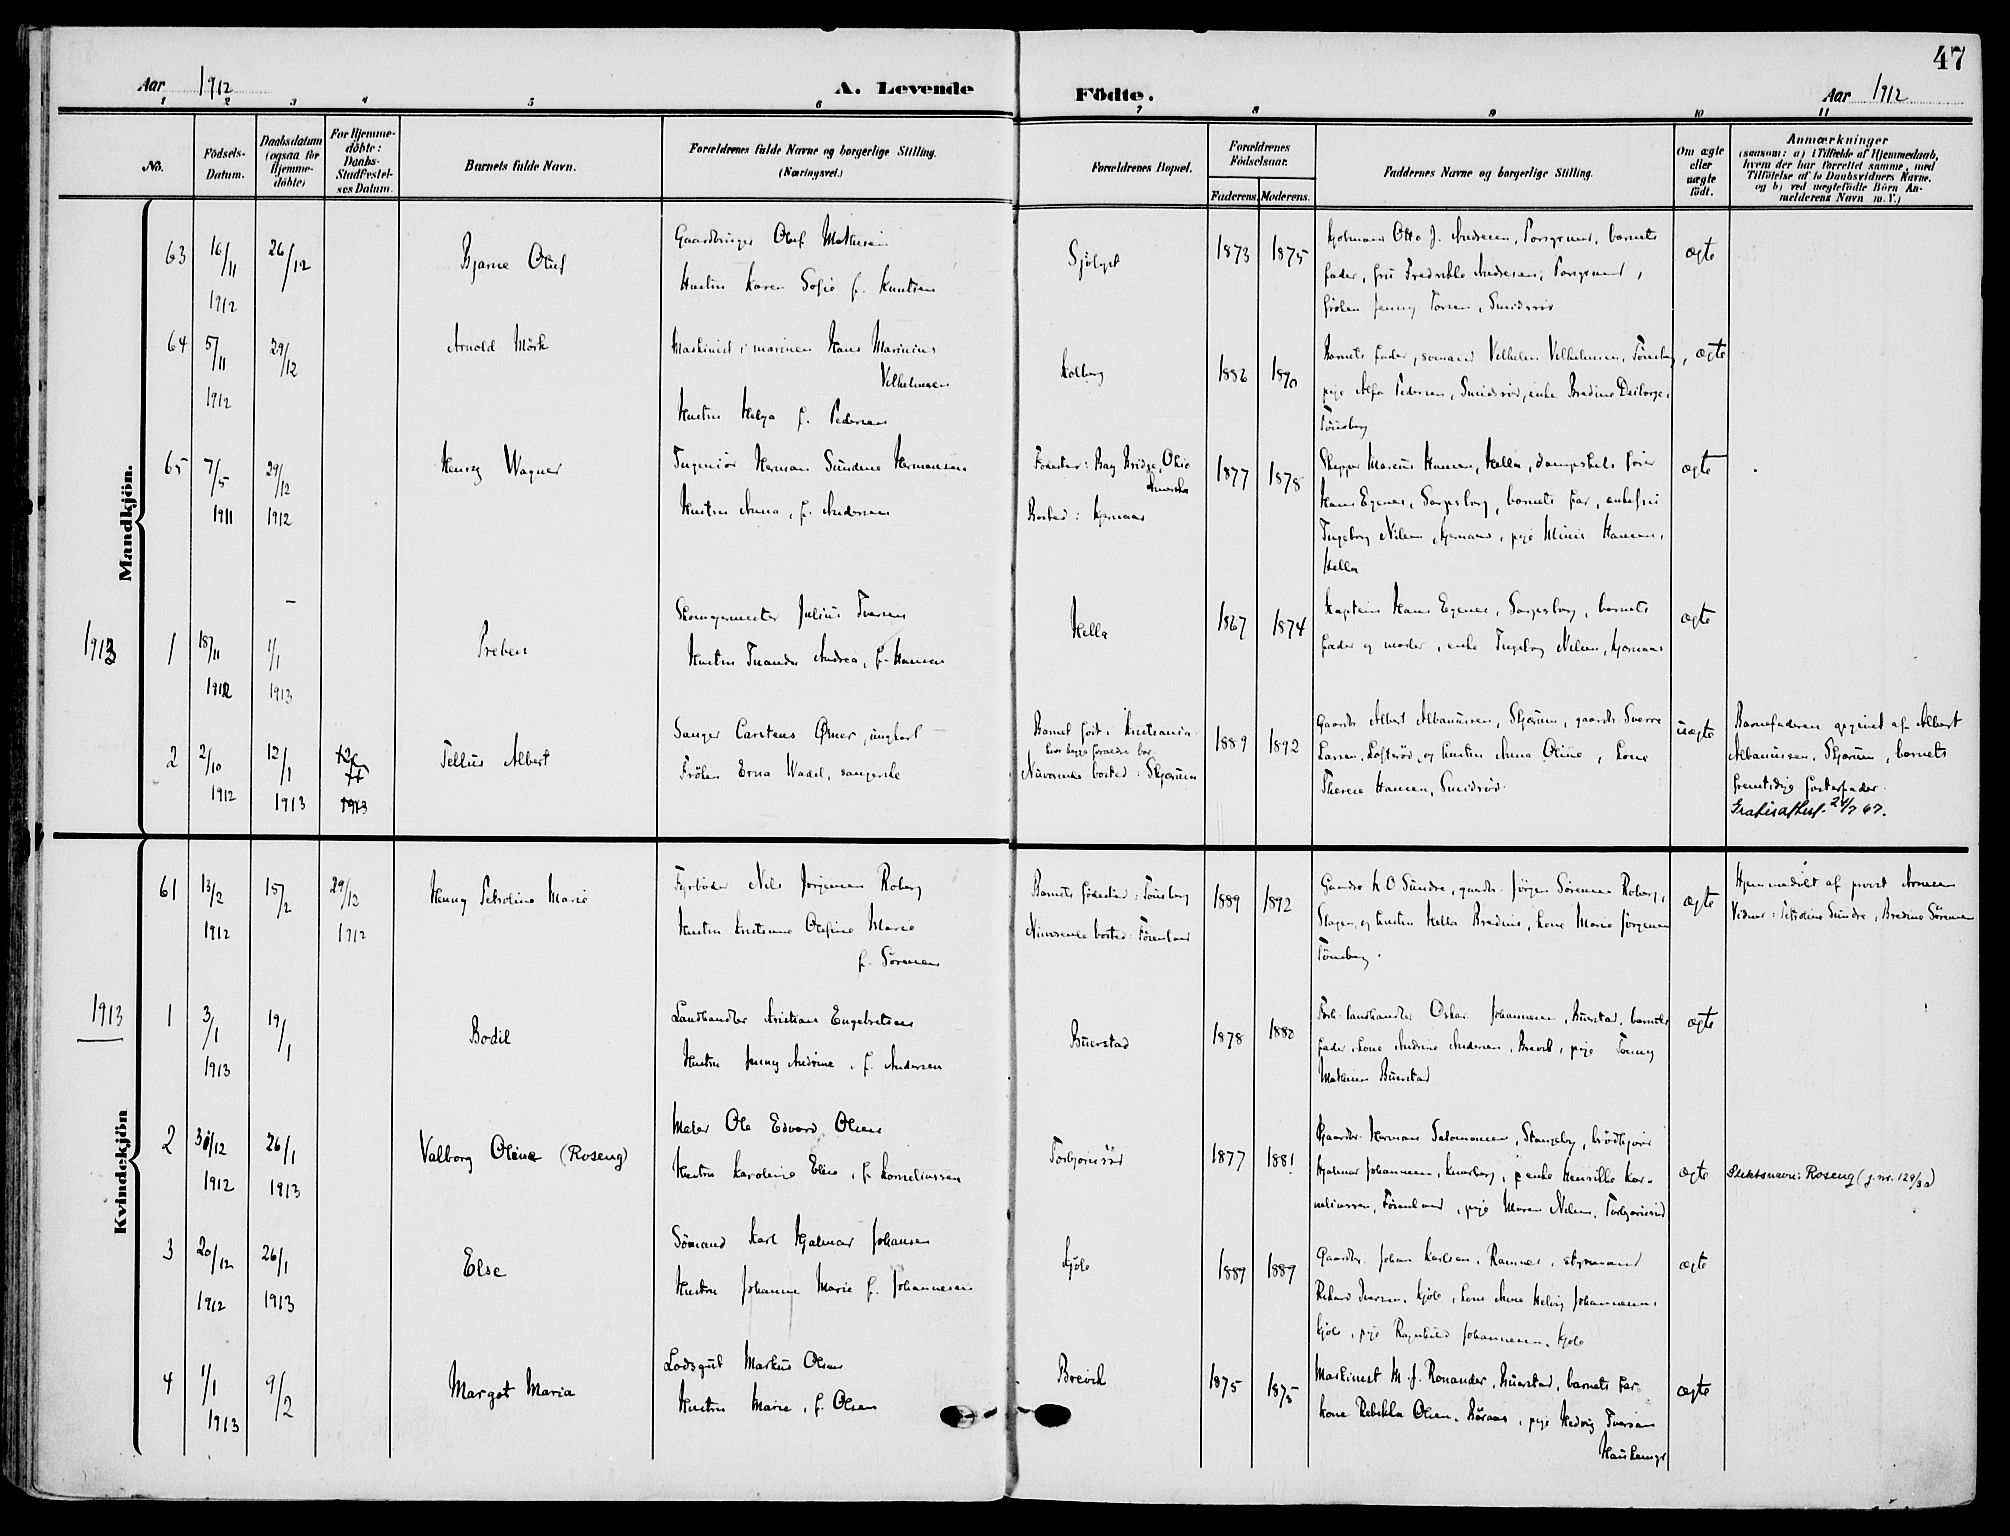 47
Aar 1912
A. Levende Födte.
Aar 1912
1 2 3 4 5 6 7 8 9 10 11
No.
Födsels-
Datum.
Daabsdatum
(ogsaa for
Hjemme-
döbte)
For Hjemme-
döbte:
Daabs-
Stadfæstel-
ses Datum.
Barnets fulde Navn.
Forældrenes fulde Navne og borgerlige Stilling.
(Næringsvei.)
Forældrenes Bopæl.
Forældrenes
Födselsaar.
Faderens. Moderens.
Faddernes Navne og borgerlige Stilling.
Om ægte
eller
uægte
födt.
Anmærkninger
(saasom: a) i Tilfælde af Hjemmedaab,
hvem der har forrettet samme, med
Tilföielse af to Daabsvidners Navne,
og b) ved uægtefödte Börn An-
melderens Navn m. V.)
Mandkjön.
63
16/11
1912
26/12
Bjarne Oluf
Gaardbruger Oluf Mathisen
Hustru Karen Sofie f. Knutsen
1873 1875
Otto J. Andresen, Porsgrund, barnets
fader, fru Fredrikke Andresen, Porsgrund,
fröken Jenny, Smidsröd
ægte
64
5/11
1912
29/12
Arnold Mörk
Maskinist i marinen Hans Marinius
Vilhelmsen
Hustru Helga f. Pedersen
Holberg
1886 1890
Barnets fader, sömand Vilhelm Vilhelmsen, Tönsberg,
pige Alfa Pedersen, Smidsröd, enke Bredine
Tönsberg
ægte
65
7/5
1911
29/12
1912
Henry Wagner
Ingeniör Herman Sundene Hermansen
Hustru Anna, f. Andersen
Födested: Bay Bridge, Ohio
Amerika
Bosted: Kjærnaas
1877 1878
Skipper Marcus Hansen, Hella, dampskibsförer
Hans Egenes, Sarpsborg, barnets far, enkefru
Ingeborg Nilsen, Kjærnaas, pige Minni Hansen,
Hella
ægte
1913
1
18/11
1912
1/1
1913
Preben
Skomagermester Julius Iversen
Hustru Inanda Andrea, f. Hansen
Hella
1867 1874
Kaptein Hans Egenes, Sarpsborg, barnets
fader og moder, enke Ingeborg Nilsen, Kjærnaas
ægte
2
2/10
1912
12/1
1913
Tellus Albert
Sanger Carstens Ørner, ungkarl
Fröken Erna Wadel, sangerske
Barnet födt i Kristiania
hvor begge foreldre bor
Nuværende bosted: Skjærum
1889 1892
Gaardbr Albert Albanussen, Skjærum, gaardbr Sverre
Larsen, Lofteröd, og hustru Anna Oline, kone
Therese Hansen, Smidsröd
uægte
Barnefaderen opgivet af Albert
Albanussen, Skjærum, barnets
fremtidige fosterfader.
Gratisattest 24/7 67.
Kvindekjön
61
13/2
1912
15/2
29/12
1912
Henny Petroline Marie
Fyrböder Nils Jörgensen Roberg
Hustru Kristianne Olefine Marie
f. Sörensen
Barnets födested: Tönsberg
Nuværende bosted: Förenland
1889 1892
Gaardbr K O Sundre, gaardbr. Jörgen Sörensen Roberg,
Slagen, og hustru Hella Bredine, kone Marie Jörgensen
Tönsberg.
ægte
Hjemmedöbt af provst Arnesen
Vidner: Petroline Sundre, Bredine Sörensen
1913
1
3/1
1913
19/1
Bodil
Landhandler Kristian Engebretsen
Hustru Jenny Andrine, f. Andersen
Buerstad
1878 1880
Forh. landhandler Oskar Johannesen, Buerstad, barnets
fader, kone Andrine Andersen, Brevik, pige Fanny
Mathisen Buerstad
ægte
2
30/12
1912
26/1
1913
Valborg Oline (Roseng)
Maler Ole Edvard Olsen
Hustru Karoline Elise, f. Korneliussen
Torbjörnröd
1877 1881
Gaardbr. Herman Salomonsen, Stangeby, brödkjörer
Hjalmar Johannesen, Knarberg, enke Henrikke Kor-
neliussen, Förenland, pige Maren Nilsen, Torbjörnröd
ægte
Slektsnavn: Roseng (j.nr. 129/32)
3
20/12
1912
26/1
1913
Else
Sömand Karl Hjalmar Johansen
Hustru Johanne Marie f. Johannesen
Kjöle
1889 1889
Gaardbr. Johan Karlsen, Ramnes, styrmand
Rikard Iversen, Kjöle, kone Anna Helvig Johannesen,
Kjöle, pige Ragnhild Johannesen, Kjöle
ægte
4
1/1
1913
9/2
Margot Maria
Lodsgut Markus Olsen
Hustru Marie, f. Olsen
Brevik
1875 1875
Maskinist M. J. Ronander, Buerstad, barnets far
kone Rebekka Olsen, Röraas, pige Hedvig Iversen
ægte